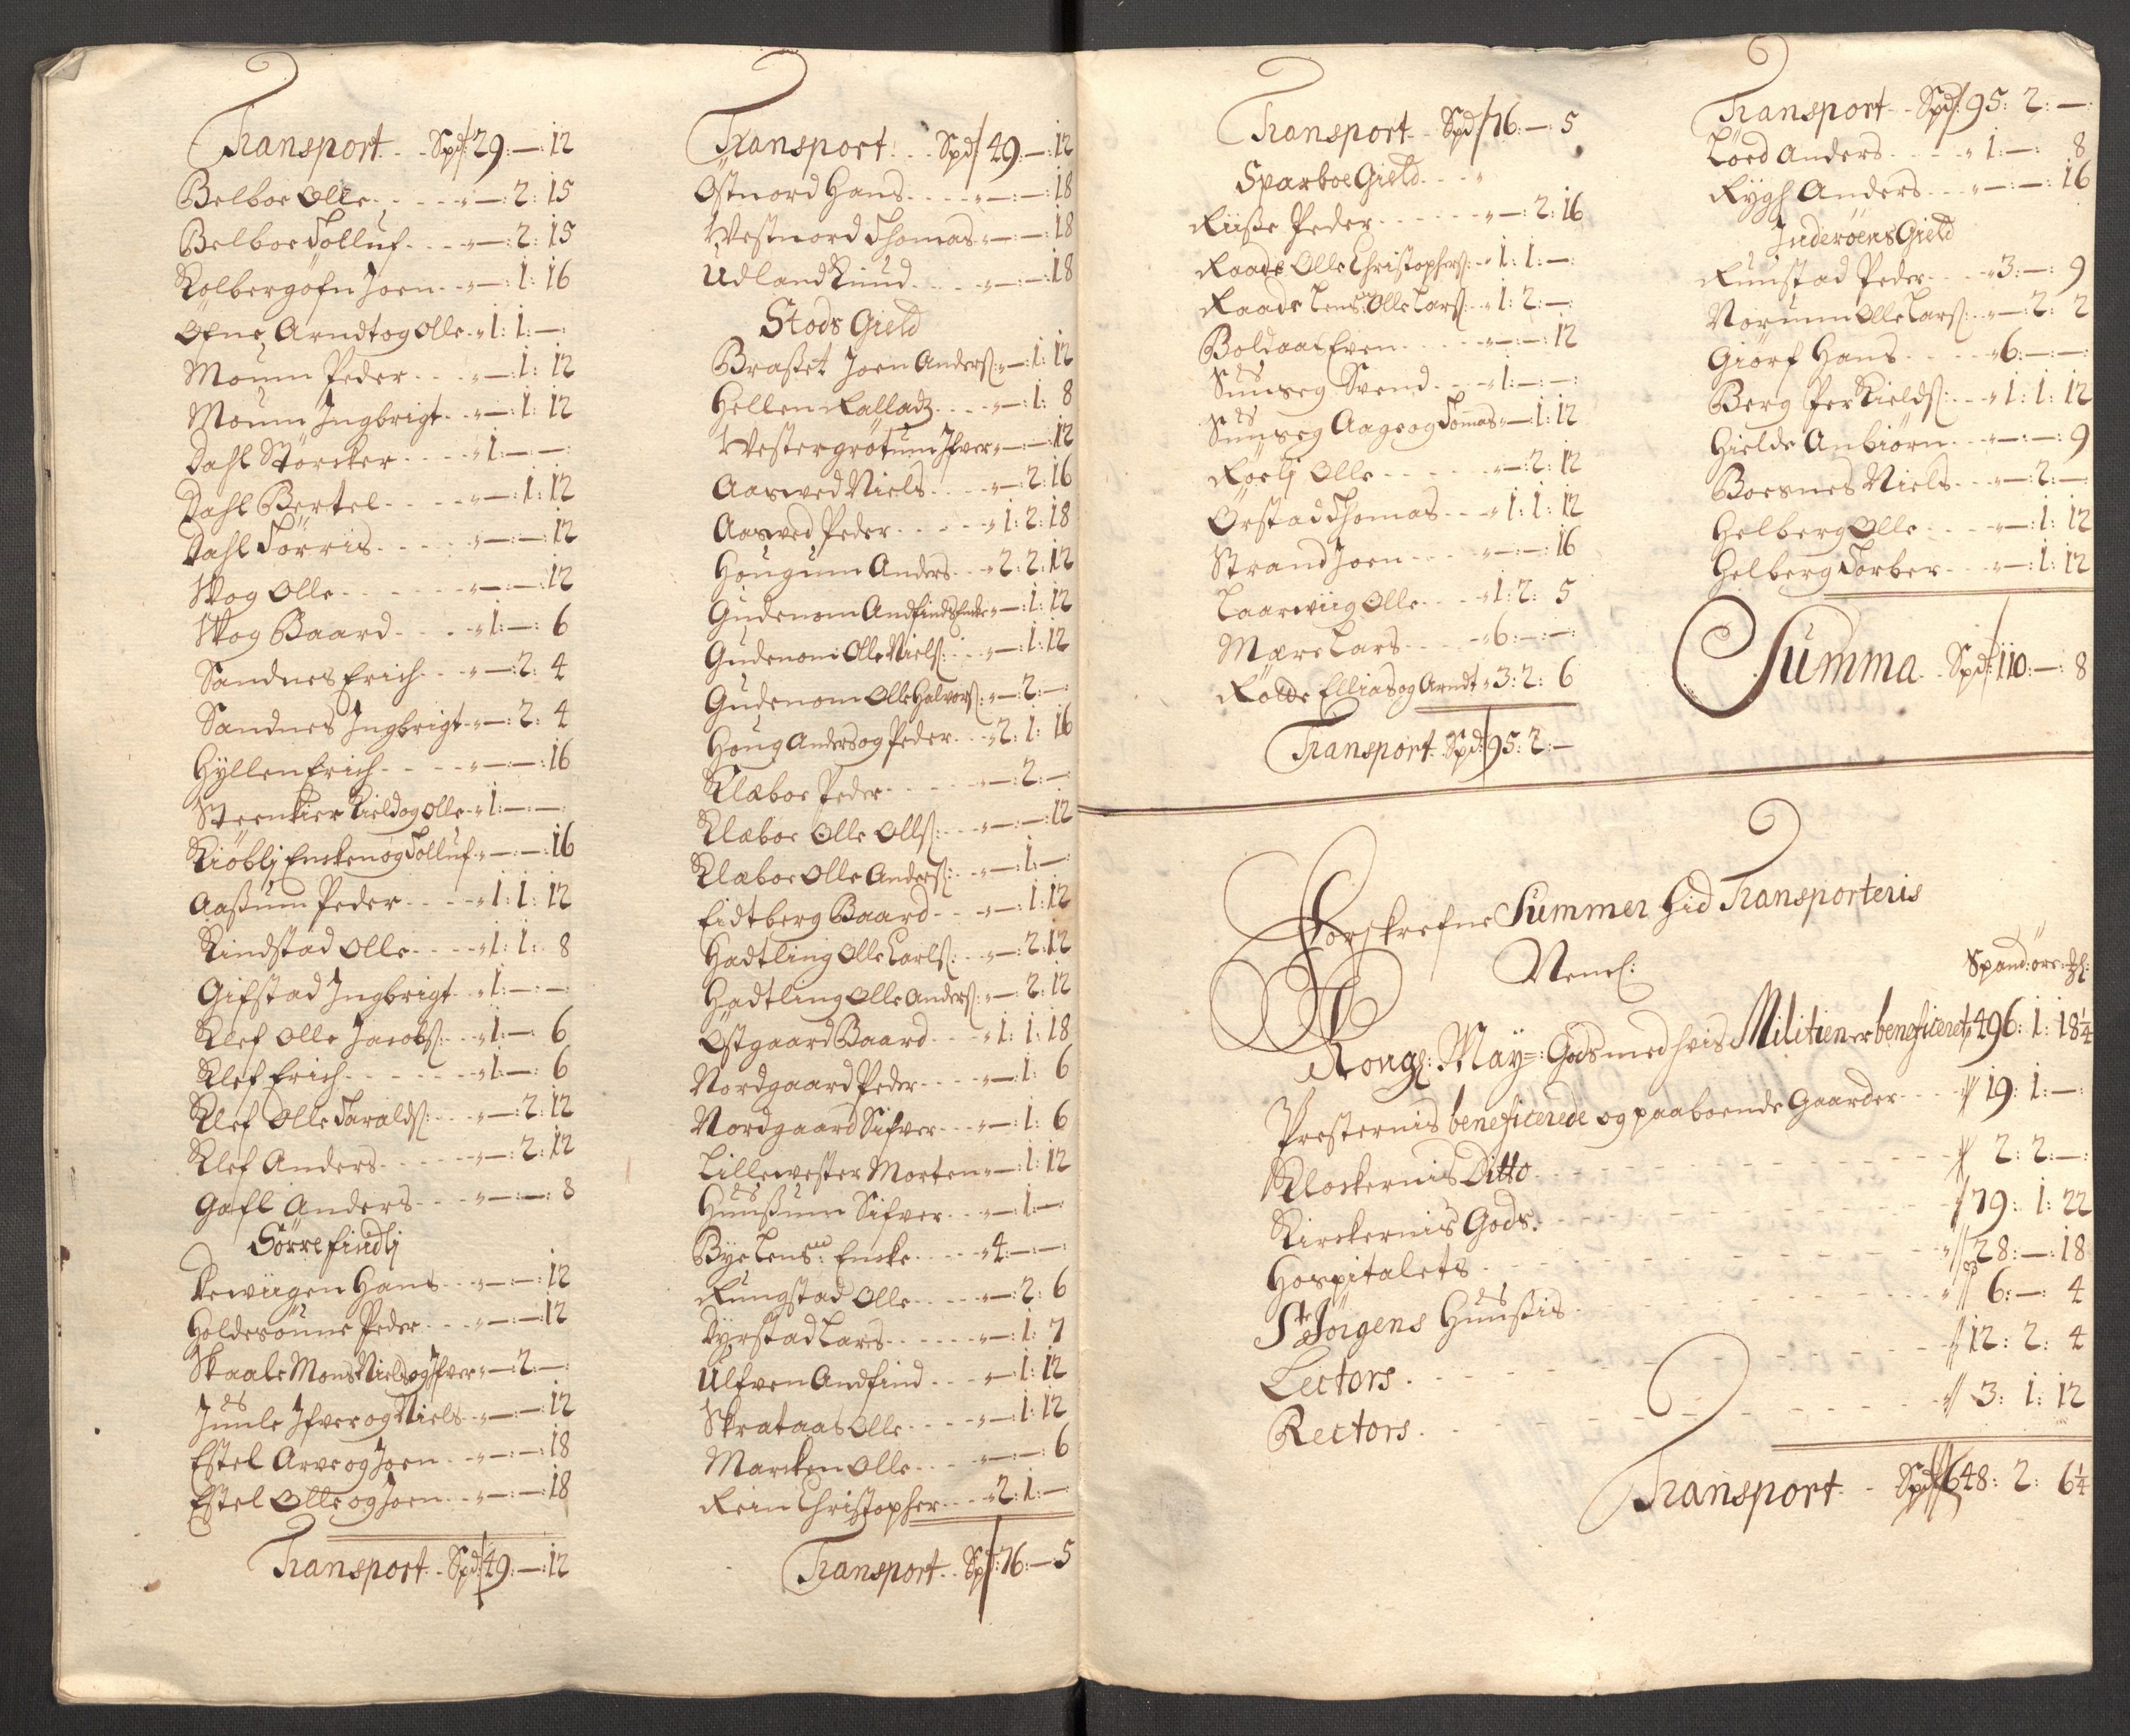 Transport - - Spd: 29: — : 12
Belboe Olle - - - - - „ — : 2: 15
Belboe Tolluf - - - - „ — : 2: 15
Kolbergofn Joen - - „ — : 1: 16
Öfne, Arndt og Olle - „ 1: 1: —:
Moum Peder - - - „ — : 1: 12
Moum Ingbrigt - - „ — : 1: 12
Dahl Störcker - - - - „ 1: — : —
Dahl Bertel - - - - - „ — : 1: 12
Dahl Törris - - - - „ — : — : 12
Skog Olle - - - - - - „ — : — : 12
Skog Baard - - - - „ 1: — : 6
Sandnes Erich - - - „ — : 2: 4
Sandnes Ingbrigt - „ — : 2: 4
Hyllen Erich - - - - „ — : — : 16
Steenkier Kield og Olle - „ 1: — : —
Kiöblj Encken og Tolluf „ — : — : 16
Aassum Peder - - - - „ 1: 1: 12
Kindstad Olle - - - - „ 1: 1: 8
Gifstad Ingbrigt - - „ 1: — : —
Klef Olle Jacobs: - - „ 1: — : 6
Klef Erich - - - - - - „ 1: — : 6
Klef Olle Taralds: - - - „ — : 2: 12
Klef Anders - - - - - „ — : 2: 12
Gafl Anders - - - „ — : — : 8
Sörre findlj
Dewiigen Hans - - - „ — : — : 12
Holdesoune Peder - - - „ — : — : 12
Skaale Mons Niels og Ifver „ — : 2: —
Juule Ifver og Niels - - „ — : — : 12
Estel Arve og Joen - - „ — : — : 18
Estel Olle og Joen - - - „ — : — : 18
Transport - - Spd: 49: — : 12
Transport - - - Spd: 49: — : 12
Östnord Hans - - - - „ — : — : 18
Westnord Thomas - „ — : — : 18
Udland Knud - - - - „ — : — : 18
Stods Gield
Brasset Joen Anders: „ — : 1: 12
Hellen Ralladz - - - - „ — : 1: 8
Westergrötum Ifver „ — : — : 12
Aaswed Niels - - - - „ — : 2: 16
Aaswed Peder - - - - - „ 1: 2: 18
Hougum Anders - - „ 2: 2: 12
Gudenom Andfinds Encke „ — : 1: 12
Gudenom Olle Niels: - - „ — : 1: 12
Gudenom Olle Halvors: „ — : 2: —
Houg Anders og Peder - - „ 2: 1: 16
Klæboe Peder - - - - - „ — : 2: —
Klæboe Olle Olls: - - - „ — : — : 12
Klæboe Olle Anders: - - „ — : 1: —
Eidtberg Baard - - - „ — : 1: 12
Hadtling Olle Carls: - - „ — : 2: 12
Hadtling Olle Anders: „ — : 2: 12
Östgaard Baard - - - „ 1: 1: 18
Nordgaard Peder - - - - „ — : 1: 6
Nordgaard Sifver - - - „ — : 1: 6
Lillewester Morten „ — : 1: 12
Huussum Sifver - - - „ — : 1: —
Bye Lens: Encke - - - - „ 4: — : —
Rungstad Olle - - - - „ — : 2: 6
Dyrstad Lars - - - - - - „ — : 1: 7
Ulfven Andfind - - - - „ — : 1: 12
Skrataas Olle - - - - - „ — : 1: 12
Marcken Olle - - - - „ — : — : 6
Rein Christopher - - - - „ 2: 1: —
Transport - - Spd: 76: — : 5
Transport - - Spd: 76: — : 5
Sparboe Gield - - - „
Riisse Peder - - - - - - „ — : 2: 16
Raade Olle Christophers: - „ 1: 1: —
Raade Lens: Olle Lars: - „ 1: 2: —
Boldaas Even - - - - - „ — : — : 12
Suuseg Svend - - - „ 1: — : —
Suuseg Aage og Tomas „ — : 1: 12
Röelj Olle - - - - - - „ — : 2: 12
Örstad Thomas - - - „ 1: 1: 12
Strand Joen - - - - „ — : — : 16
Laarwiig Olle - - - „ 1: 2: 5
Mære Lars - - - - „ 6: — : —
Rolde Ellias og Arndt „ 3: 2: 6
Transport - Spd: 95: 2: —
Transport - - Spd: 95: 2: —
Löed Anders - - - - - „ 1: — : 8
Rygh Anders - - - „ — : — : 16
Inderöens Gield
Ruustad Peder - - - „ 3: — : 9
Norum Olle Lars: - - „ — : 2: 2
Giörf Hans - - - - „ 6: — : —
Berg Per Kields: - - - „ 1: 1: 12
Hielde Anbiörn - - - „ — : — : 9
Boesnes Niels - - - „ — : 2: —
Helberg Olle - - - - „ — : 1: 12
Helberg Torber - - - „ — : 1: 12
Summa - - Spd: 110: — : 8
Forskrefne Summer hid Transporteris
Neml:
Spand: öre: ʒl:
Kongl: May=: Gods med hvis Militien er beneficeret, 496: 1: 18¼
Presternis beneficerede og paaboende Gaarder - - - - „ 19: 1: —
Klockernis Ditto - - - - „ 2: 2: —
Kirckernis Gods: - - - - „ 79: 1: 22
Hospitalets - - - - „ 28: — : 18
St: Jörgens Huussis - - - - „ 6: — : 4
Lectors - - - - „ 12: 2: 4
Rectors - - - - „ 3: 1: 12
Transport - - Spd: 648: 2: 6¼